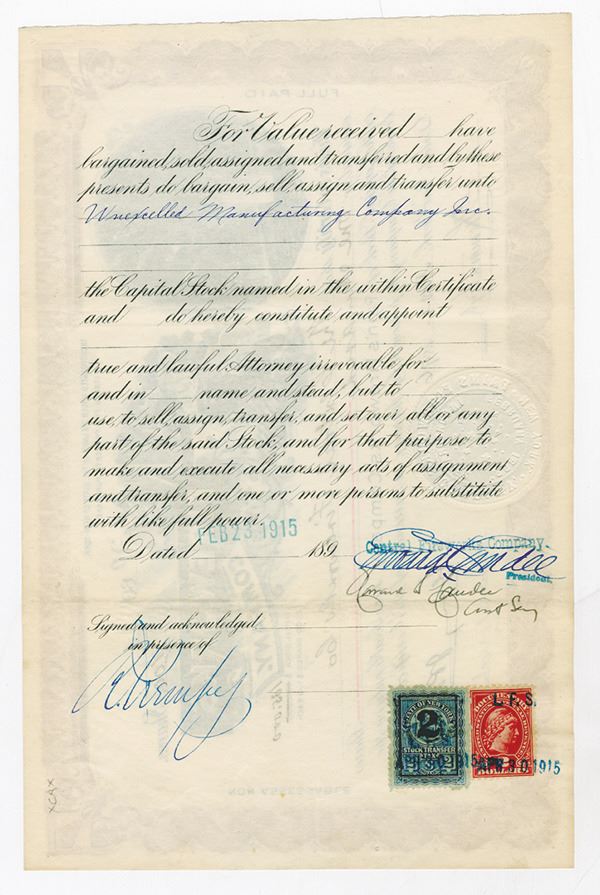 For Value received have
bargained, sold, assigned and transferred and by these
presents do bargain, sell, assign and transfer unto
Unexcelled Manufacturing Company Inc.
the Capital Stock named in the within Certificate
and do hereby constitute and appoint
true and lawful Attorney irrevocable for
and in name and stead, but to
use, to sell, assign, transfer, and set over all or any
part of the said Stock, and for that purpose to
make and execute all necessary acts of assignment
and transfer, and one or more persons to substitute
with like full power.
FEB 23 1915
Dated 189
Central Fireworks Company.
President.
Signed and acknowledged
in presence of
L.F.S.
STATE OF NEW YORK
2
STOCK TRANSFER
APR 30 1915 APR 30 1915
FULL PAID
NON ASSESSABLE